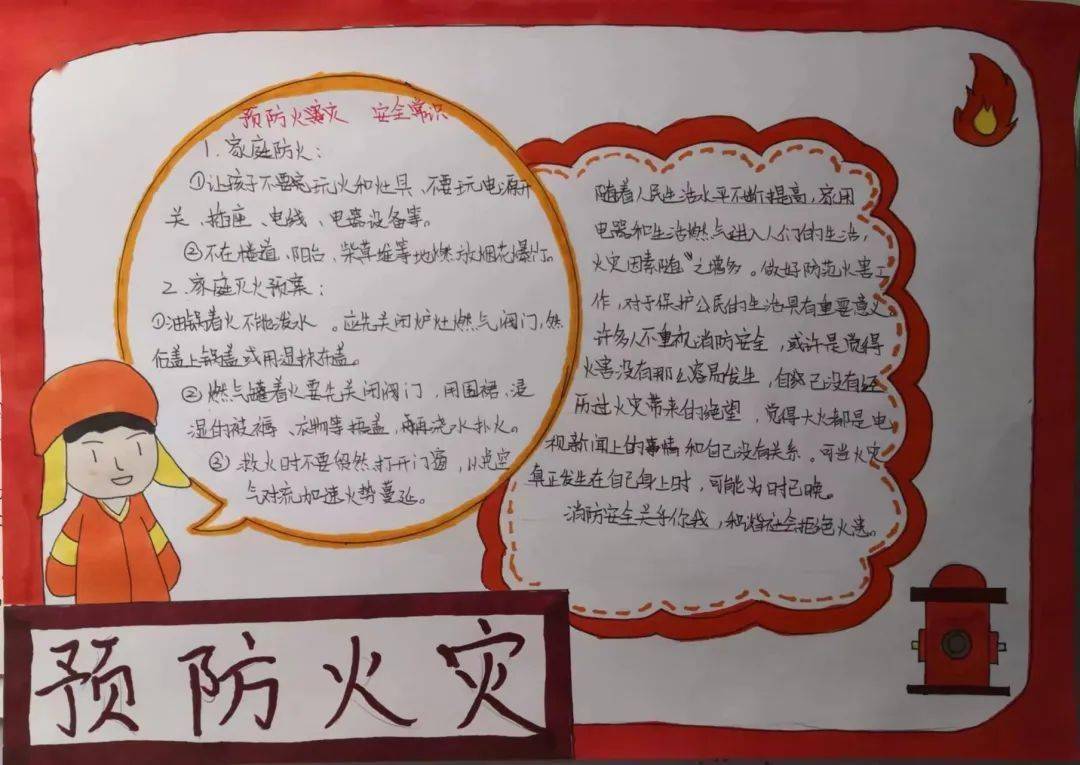 预防火灾 安全常识
1. 家庭防火：
①让孩子不要玩火和灶具、不要玩电源开
关、插座、电线、电器设备等。
②不在楼道、阳台、柴草堆等地燃放烟花爆竹。
2. 家庭灭火预案：
①油锅着火不能泼水。应先关闭炉灶燃气阀门，然
后盖上锅盖或用湿抹布盖。
②燃气罐着火要先关闭阀门，用围裙、浸
湿的被褥、衣物等捂盖，再浇水扑火。
③救火时不要贸然打开门窗，以免空
气对流加速火势蔓延。
随着人民生活水平不断提高，家用
电器和生活燃气进入人们的生活，
火灾因素随之增多。做好防范火害工
作，对于保护公民的生活具有重要意义
许多人不重视消防安全，或许是觉得
火害没有那么容易发生，自己没有经
历过火灾带来的绝望，觉得大火都是电
视新闻上的事情和自己没有关系。可当火灾
真正发生在自己身上时，可能为时已晚。
消防安全关乎你我，和谐社会拒绝火患。
预防火灾